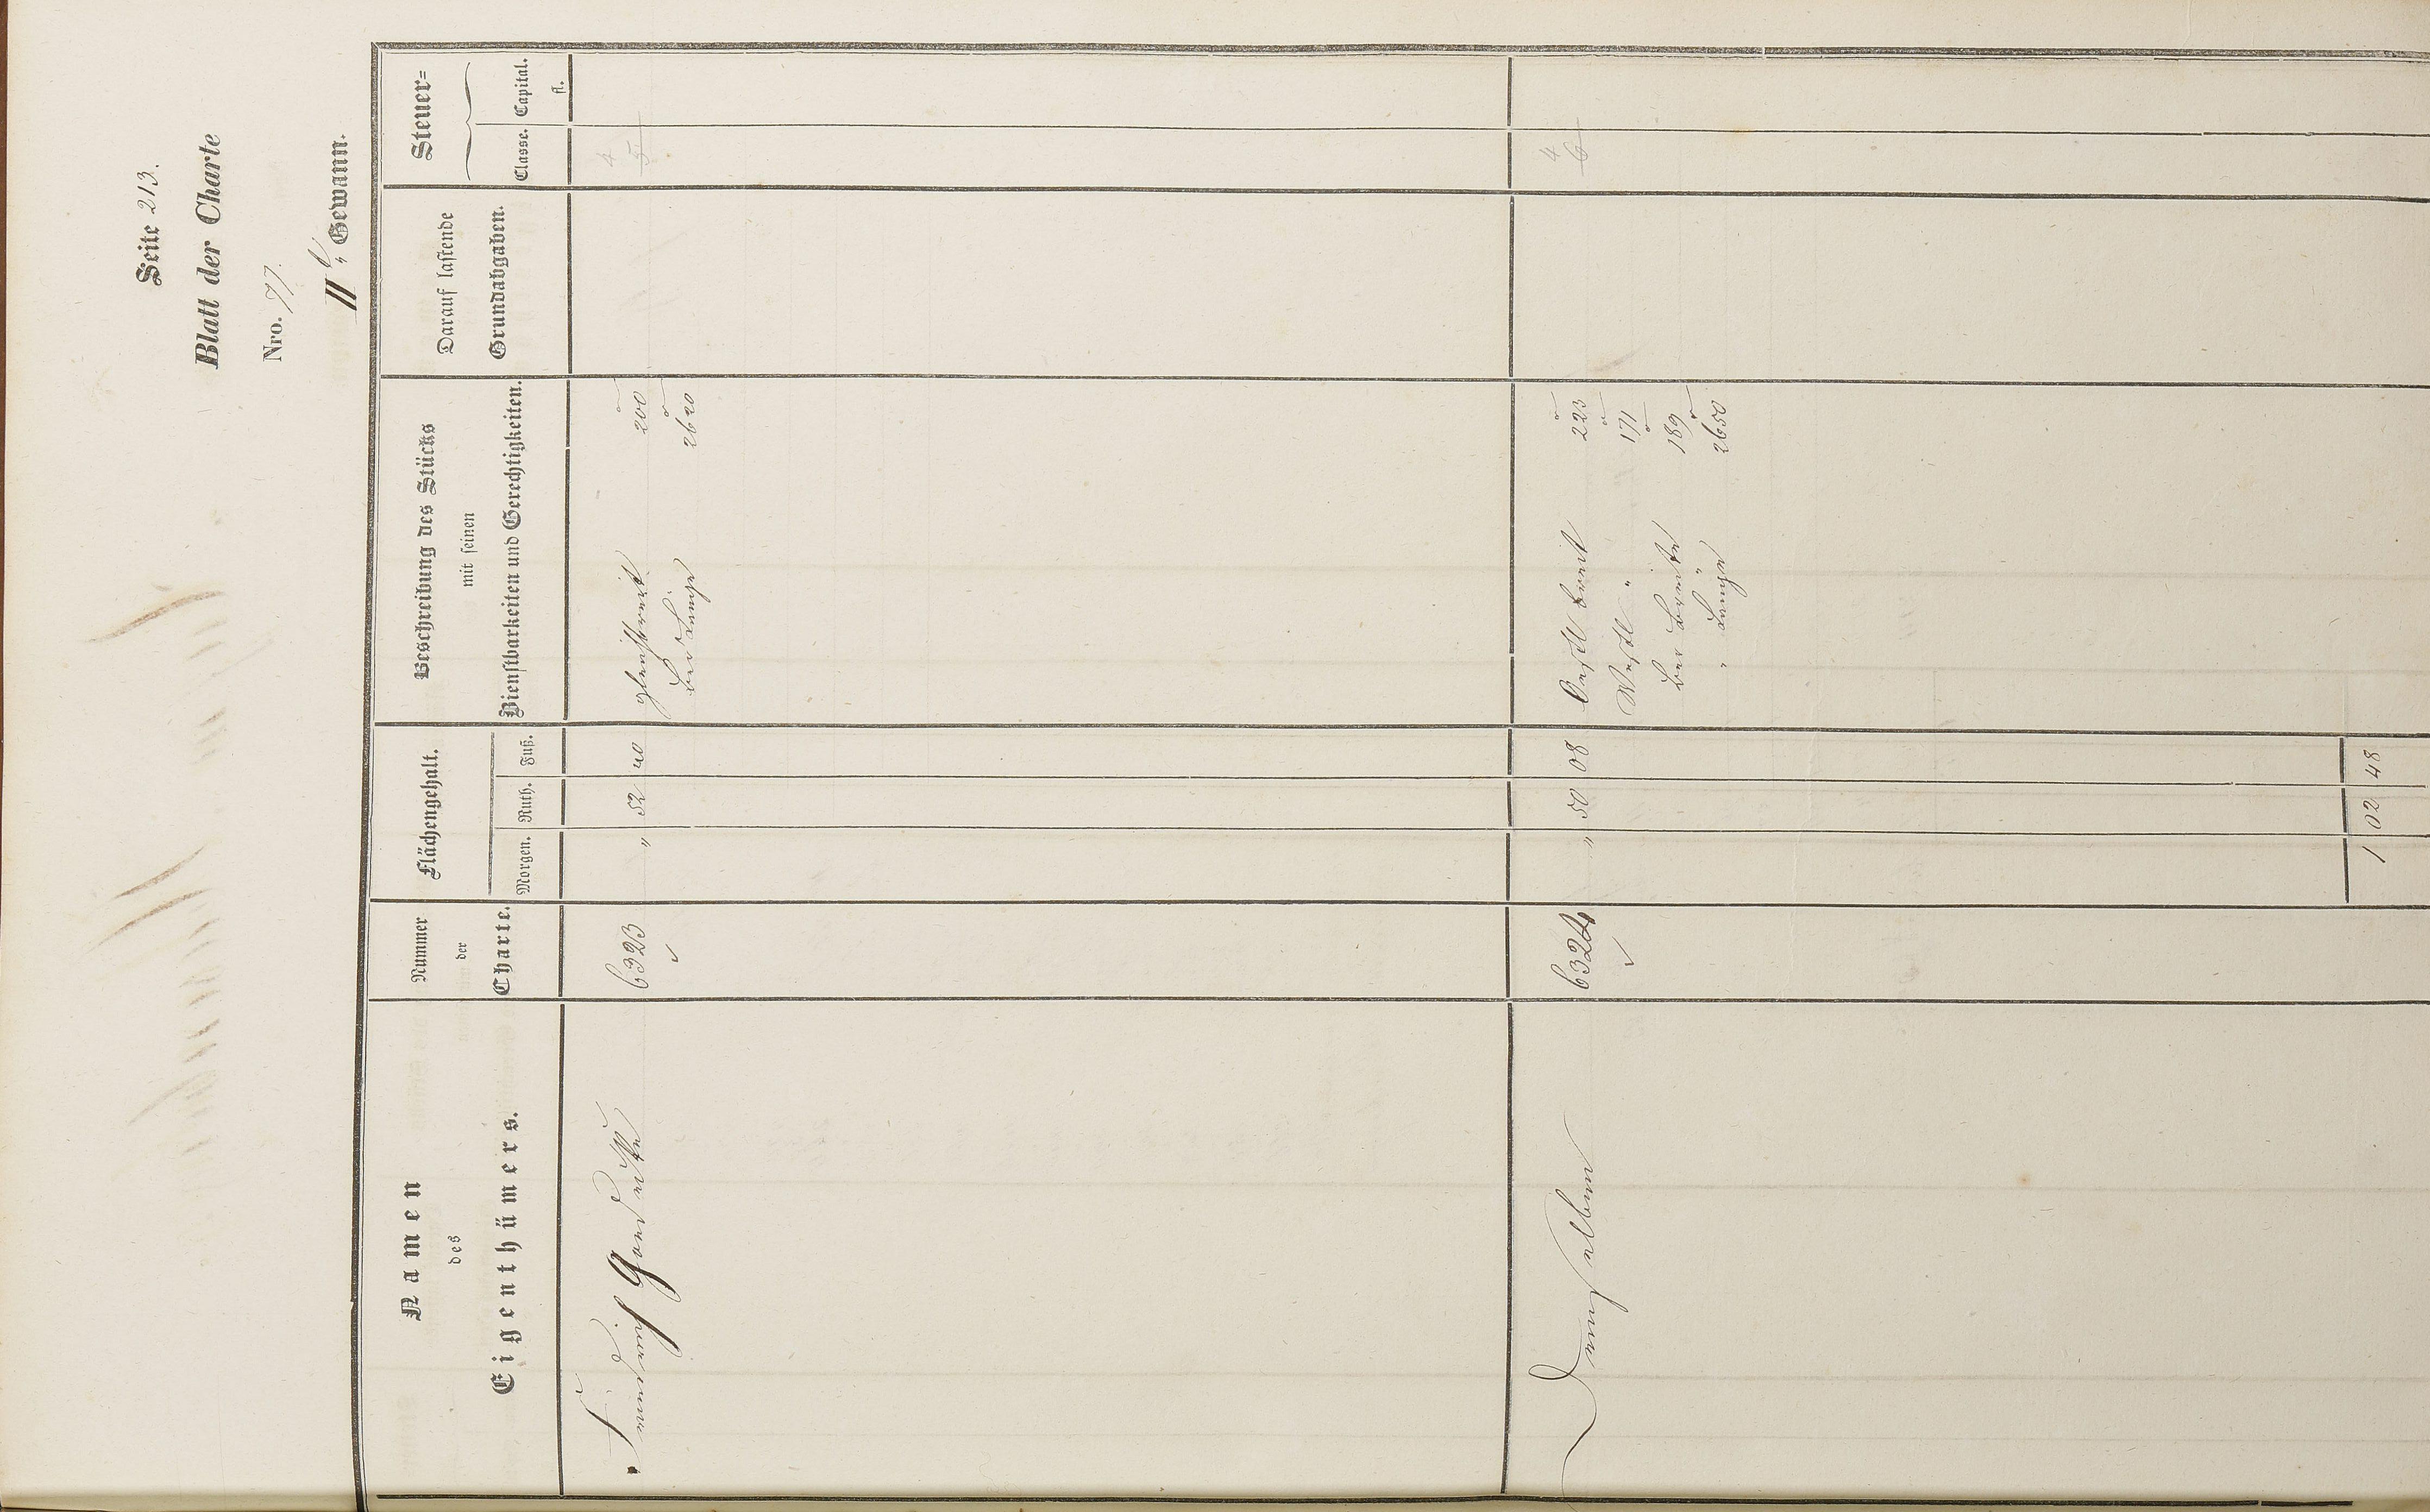 Seite 213.
Blatt der Charte
Nro. 77.
II Gewann.
Namen
des
Eigenthümers.
Nummer
der
Charte.
Flächengehalt.
Morgen. Ruth. Fuß.
Beschreibung des Stücks
mit seinen
Dienstbarkeiten und Gerechtigkeiten.
Darauf lastende
Grundabgaben.
Steuer=
Classe. Capital.
fl.
4
Friedrich 6323 " 52 40 gleichbreit 200 5
Ber Länge 2620
4
Demselben 6324 " 50 08 Oestl breit 223 6
Westl " 171
Ber Breite 189
" Länge 2650
1 02 48